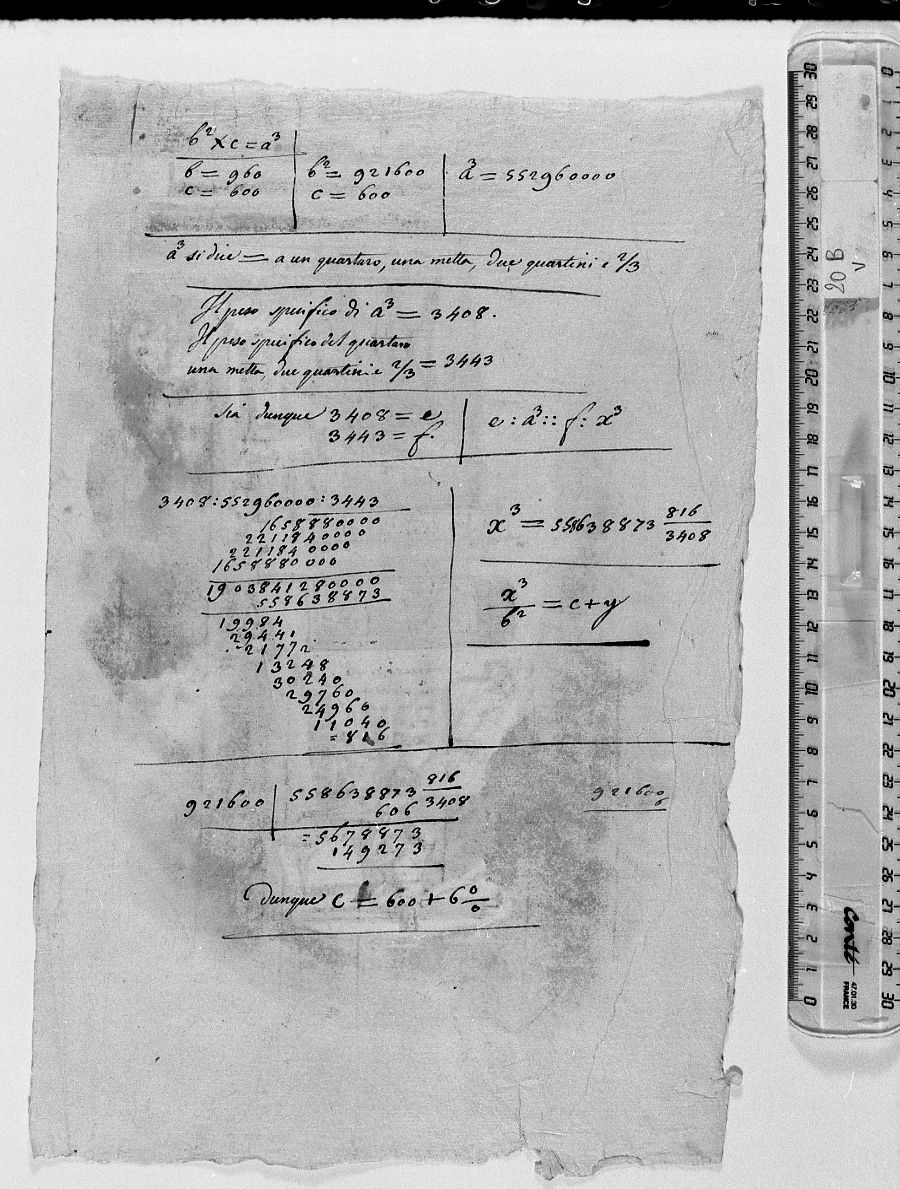 b² × c = a³
b = 960
c = 600
b² = 921600
c = 600
a³ = 552960000
a³ si dice = a un quartaro, una metta, due quartini e 2/3
Il peso specifico di a³ = 3408.
Il peso specifico del quartaro
una metta, due quartini e 2/3 = 3443
Sia dunque 3408 = e
3443 = f.
e : a³ :: f : x³
3408 : 552960000 : 3443
1658880000
2211840000
2211840000
1658880000
1903841280000
558638873
19984
29441
21772
13248
30240
29760
24960
11040
= 816
x³ = 558638873 816/3408
x³/b² = c + y
921600
558638873 816/3408
606
= 5678873
149273
921600
6
Dunque c = 600 + 6 0/0
20 B
V
30 29 28 27 26 25 24 23 22 21 20 19 18 17 16 15 14 13 12 11 10 9 8 7 6 5 4 3 2 1 0
Conté
FRANCE